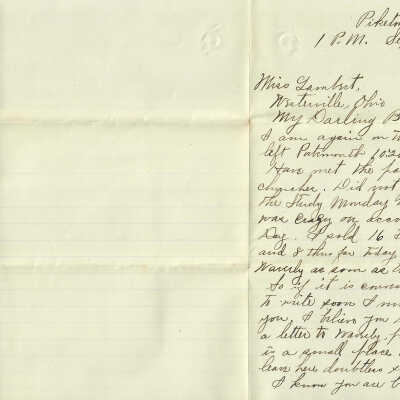 Piketon
1 P.M. Se
Miss Lambert,
Waterville, Ohio
My Darling B
I am again on
left Portsmouth 10:2
Have met the pa
churches. Did not
the Study Monday
was crazy on acco
Day. I sold 16
and 8 thus far today
Waverly as soon as
So if it is conve
to write soon I
you. I believe you
a letter to Waverly
is a small place
leave here doubtless
I know you are t